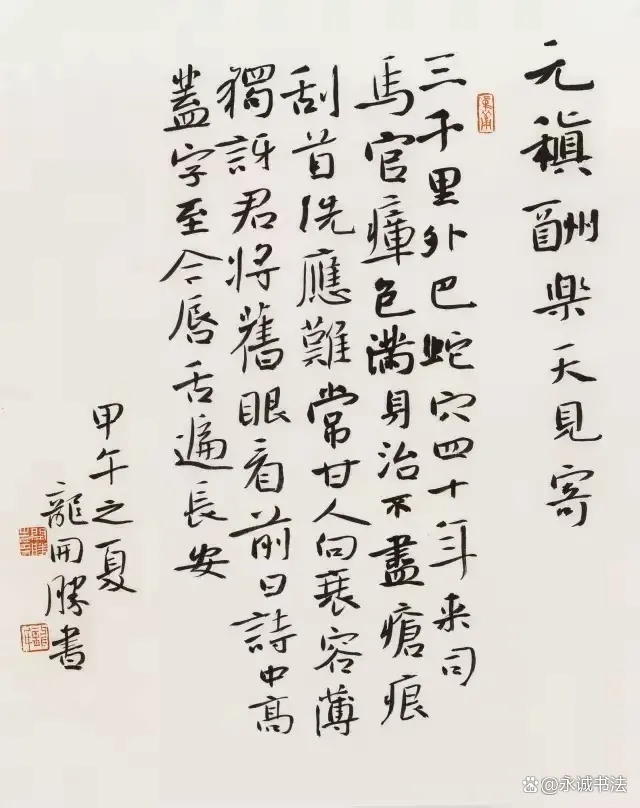 元稹酬楽天見寄
三千里外巴蛇穴四十年来司
馬官瘴色滿身治不盡瘡痕
刮首洗應難常甘人向衰容薄
獨訝君将舊眼看前日詩中高
蓋字至今唇舌遍長安
甲午之夏
龍開勝書
@永诚书法